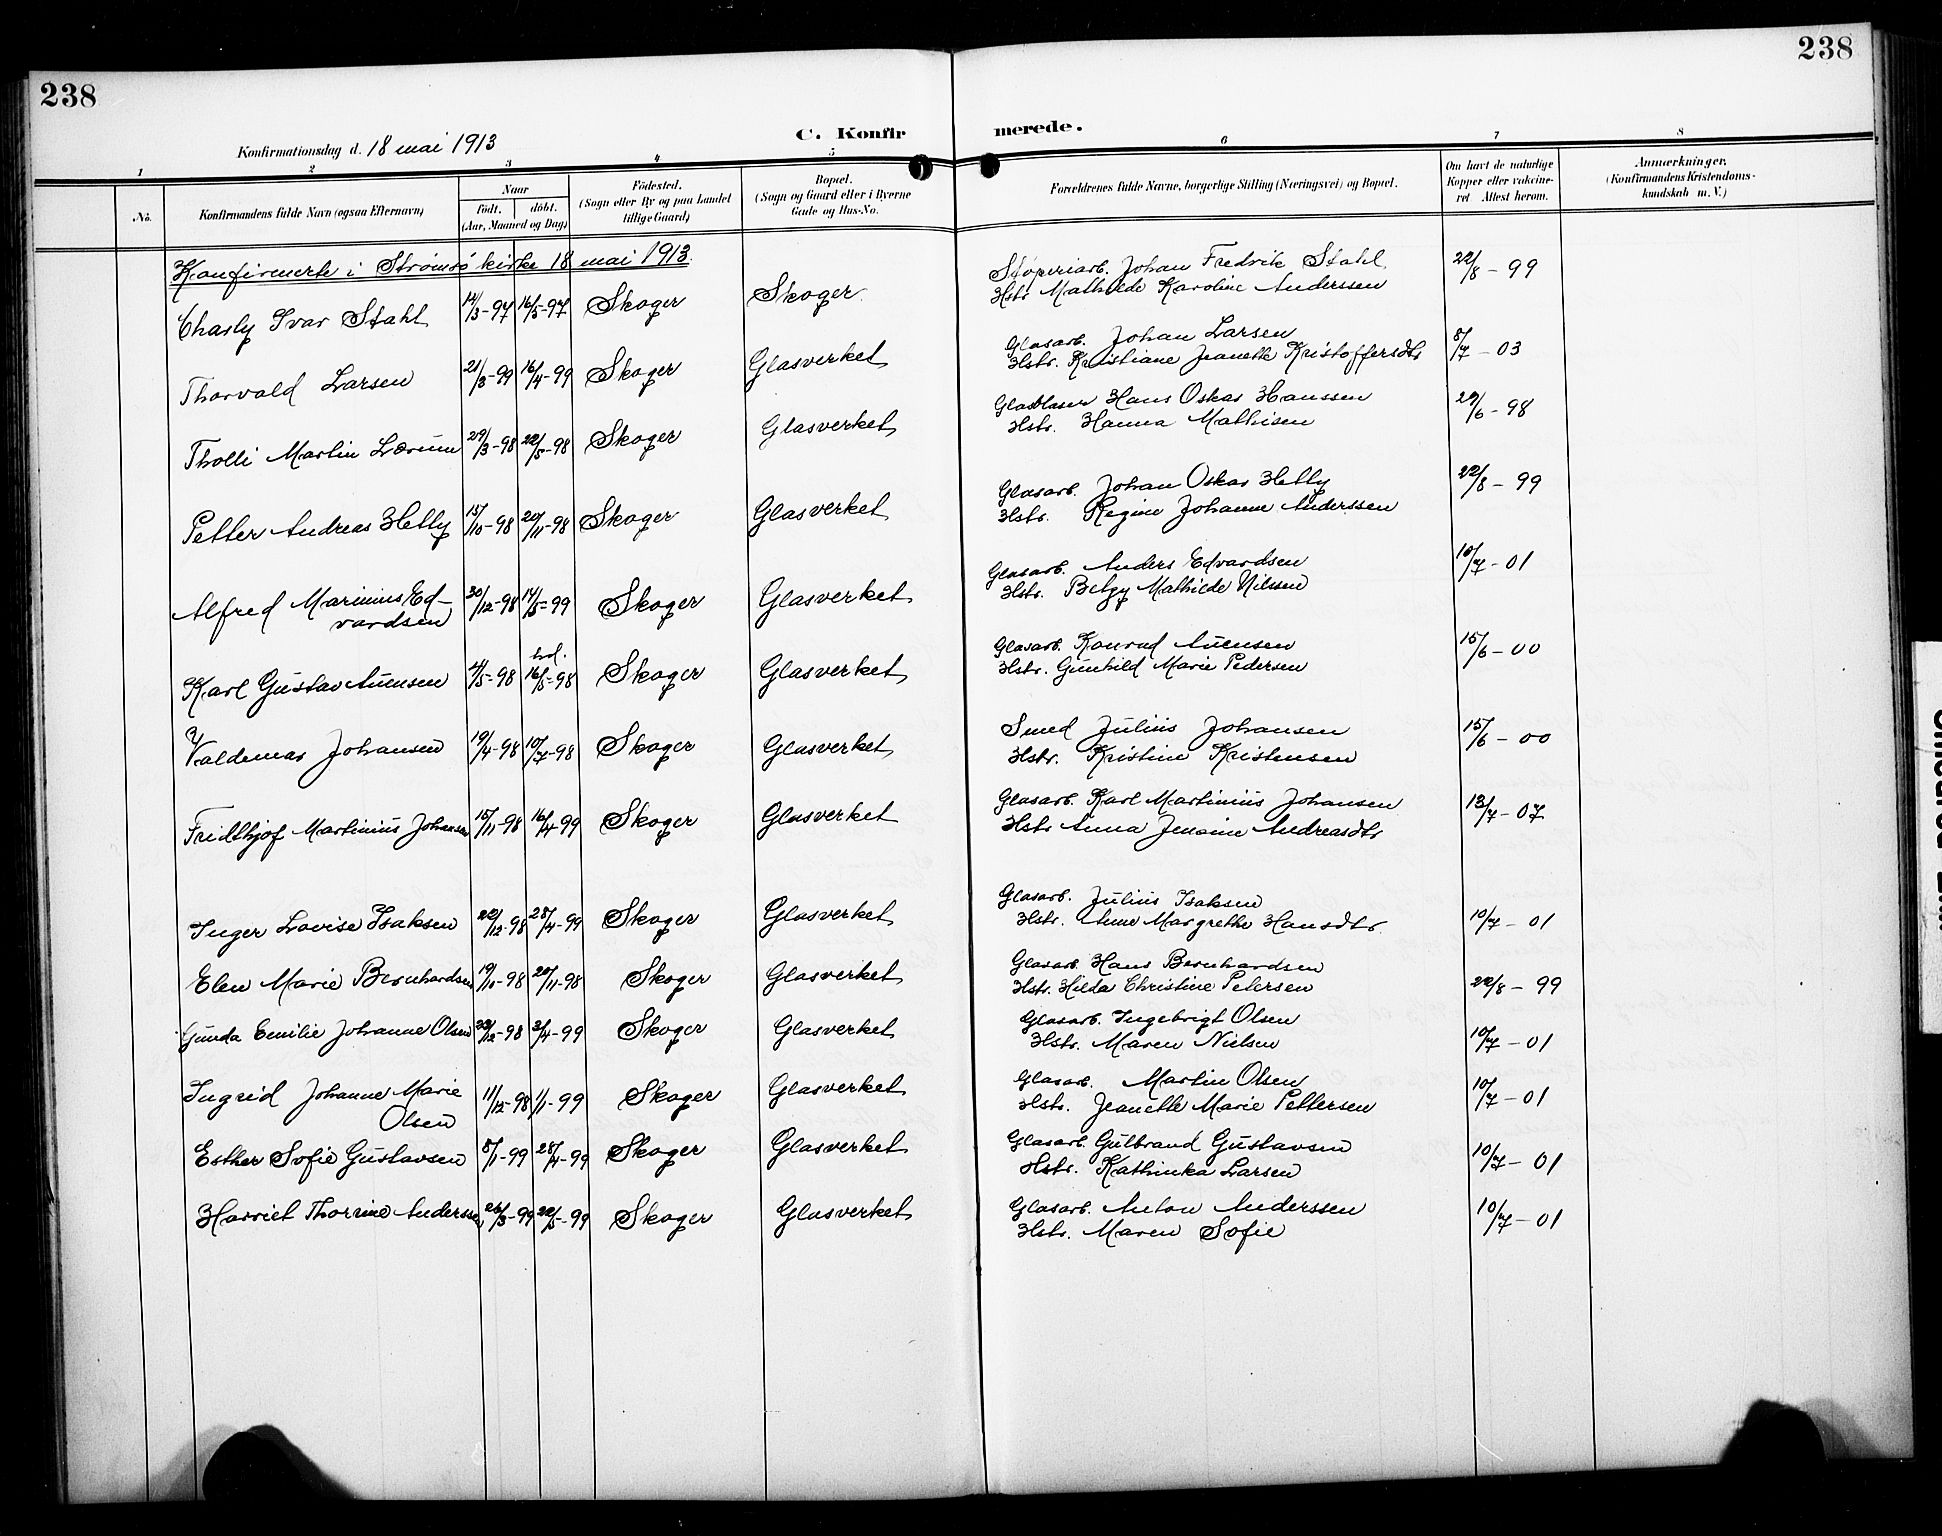 238
238
C. Konfirmerede.
Konfirmationsdag d. 18 mai 1913
1 2 3 4 5 6 7 8
No.
Konfirmandens fulde Navn (ogsaa Efternavn)
Naar
födt. döbt.
(Aar, Maaned og Dag)
Födested.
(Sogn eller By og paa Landet
tillige Gaard)
Bopæl.
(Sogn og Gaard eller i Byerne
Gade og Hus-No.
Forældrenes fulde Navne, borgerlige Stilling (Næringsvei) og Bopæl.
Om havt de naturlige
Kopper eller vakcine-
ret Attest herom.
Anmærkninger.
(Konfirmandens Kristendoms-
kundskab m. V.)
Konfirmerte i Strømsø kirke 18 mai 1913.
Charly Ivar Stahl 14/3-97 16/5-97 Skoger Skoger Støperiarb. Johan Fredrik Stahl 22/8-99
Hstr Mathilde Karoline Anderssen
Thorvald Larsen 21/3-99 16/4-99 Skoger Glasverket Glasarb. Johan Larsen 8/7-03
Hstr. Kristiane Jeanette Kristoffersdtr
Tholli Martin Lærum 29/3-98 22/5-98 Skoger Glasverket Glasblaser Hans Oskar Hanssen 29/6-98
Hstr. Hanna Mathisen
Petter Andreas Helly 15/10-98 20/11-98 Skoger Glasverket Glasarb. Johan Oskar Helly 22/8-99
Hstr. Regine Johanne Anderssen
Alfred Marinius Ed-
vardsen 30/12-98 14/5=99 Skoger Glasverket Glasarb. Anders Edvardsen 10/7-01
Hstr. Betzy Mathilde Nilssen
Karl Gustav Auensen 4/5-98 16/5=98 Skoger Glasverket Glasarb. Konrad Auensen 15/6-00
Hstr. Gunhild Marie Pedersen
Valdemar Johansen 19/4-98 10/7-98 Skoger Glasverket Smed Julius Johansen 15/6-00
Hstr. Kristine Kristensen
Fridthjof Martinius Johansen 15/11-98 16/4-99 Skoger Glasverket Glasarb. Karl Martinius Johansen 13/7-07
Hstr Anna Jensine Andreasdtr
Inger Lovise Isaksen 22/12-98 23/4-99 Skoger Glasverket Glasarb. Julius Isaksen
Hstr. Anne Margrethe Hansdtr. 10/7-01
Elen Marie Bernhardsen 19/10-98 20/11-98 Skoger Glasverket Glasarb. Hans Bernhardsen
Hstr. Hilda Christine Petersen 22/8-99
Gunda Emilie Johanne Olsen 23/12-98 3/4-99 Skoger Glasverket Glasarb. Ingebrigt Olsen
Hstr. Maren Nielsen 10/7-01
Ingrid Johanne Marie
Olsen 11/12-98 1/1-99 Skoger Glasverket Glasarb. Martin Olsen 10/7-01
Hstr. Jeanette Marie Pettersen
Esther Sofie Gustavsen 8/1-99 23/4-99 Skoger Glasverket Glasarb. Gulbrand Gustavsen 10/7-01
Hstr. Kathinka Larsen
Harriet Thorine Anderssen 26/3-99 22/5-99 Skoger Glasverket Glasarb. Anton Anderssen 10/7-01
Hstr. Maren Sofie